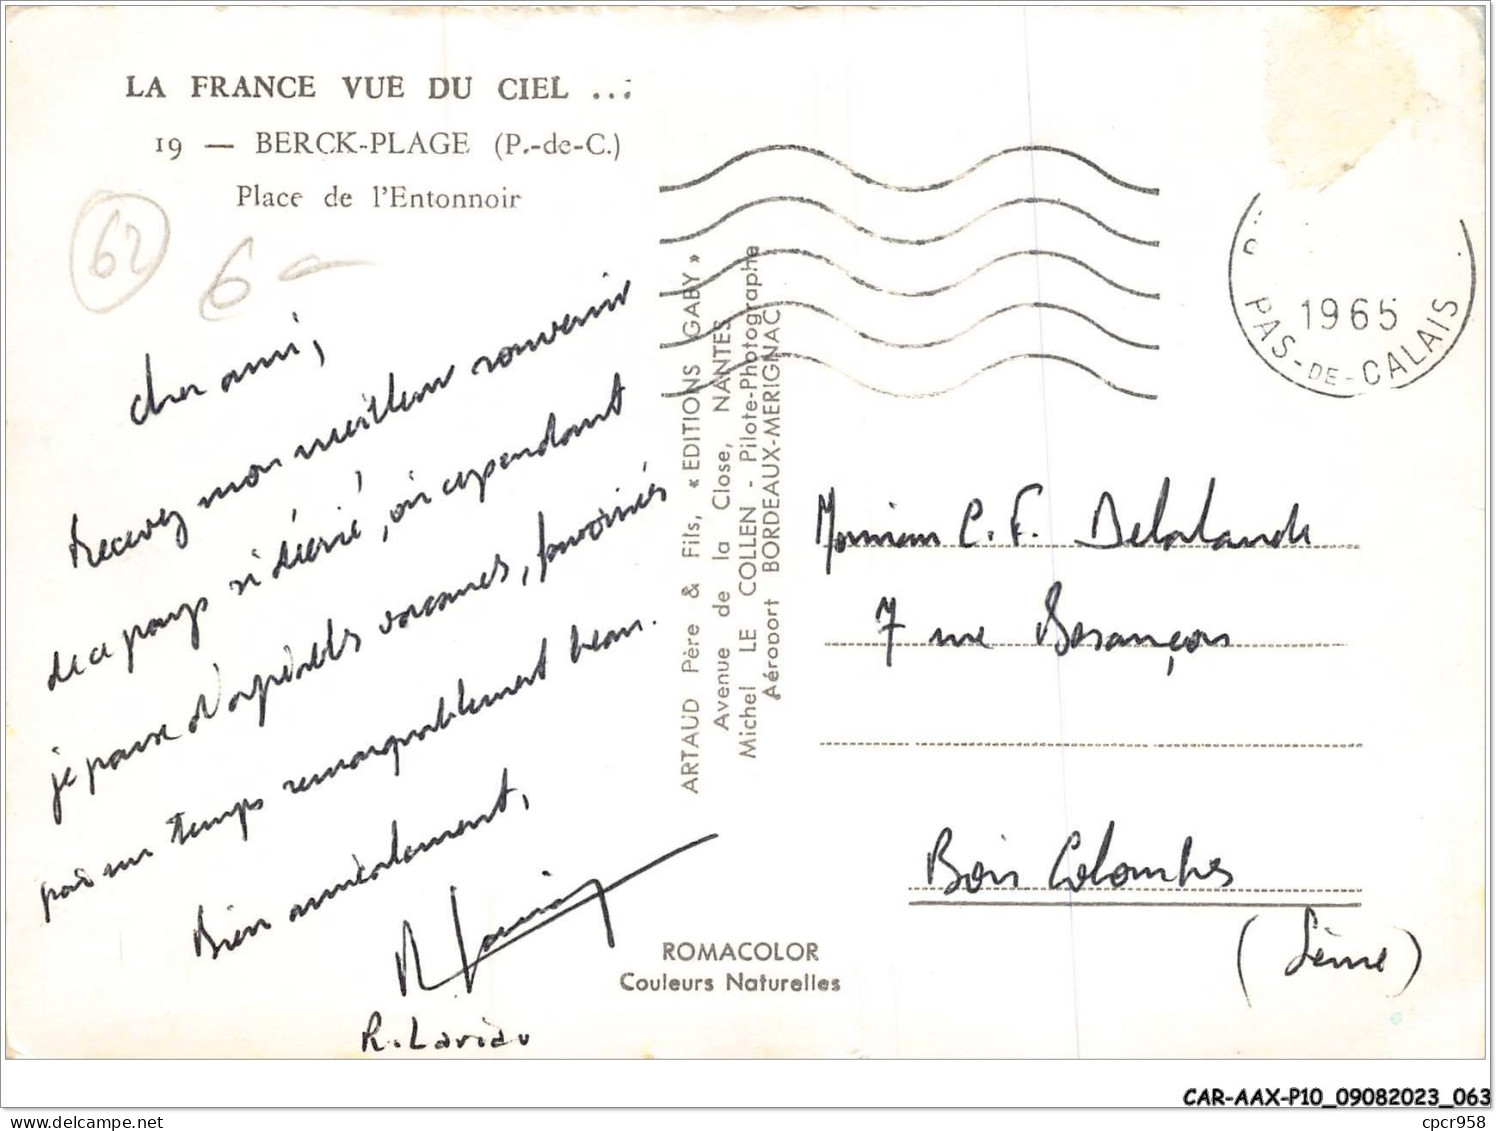 LA FRANCE VUE DU CIEL ...
19 — BERCK-PLAGE (P.-de-C.)
Place de l'Entonnoir
62
6 —
Cher ami,
Recevez mon meilleur souvenir
de ce pays si décrié, où cependant
je passe d'agréables vacances, favorisées
par un temps remarquablement beau.
Bien amicalement,
R. Lavian
ARTAUD Père & Fils, « EDITIONS GABY »
Avenue de la Close, NANTES
Michel LE COLLEN - Pilote-Photographe
Aéroport BORDEAUX-MERIGNAC
ROMACOLOR
Couleurs Naturelles
1965
PAS-DE-CALAIS
Monsieur C. F. Delalande
7 rue Besançon
Bois Colombes
(Seine)
CAR-AAX-P10_09082023_063
cpcr958